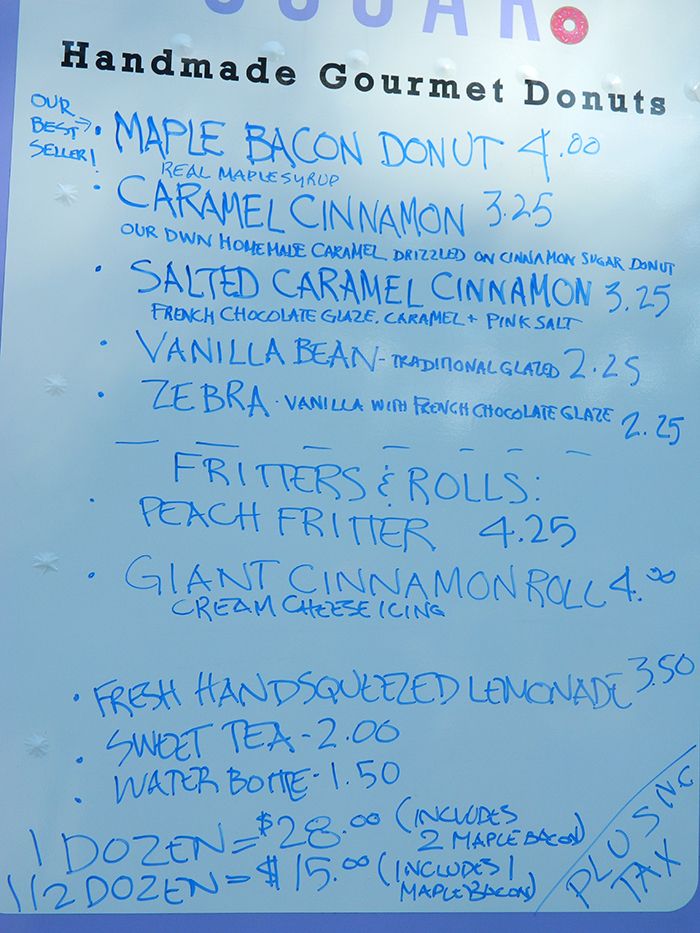 Handmade Gourmet Donuts
OUR BEST SELLER!
• MAPLE BACON DONUT 4.00
REAL MAPLE SYRUP
• CARAMEL CINNAMON 3.25
OUR OWN HOMEMADE CARAMEL DRIZZLED ON CINNAMON SUGAR DONUT
• SALTED CARAMEL CINNAMON 3.25
FRENCH CHOCOLATE GLAZE. CARAMEL + PINK SALT
• VANILLA BEAN - TRADITIONAL GLAZED 2.25
• ZEBRA - VANILLA WITH FRENCH CHOCOLATE GLAZE 2.25
FRITTERS & ROLLS:
• PEACH FRITTER 4.25
• GIANT CINNAMON ROLL 4.00
CREAM CHEESE ICING
• FRESH HANDSQUEEZED LEMONADE 3.50
• SWEET TEA - 2.00
• WATER BOTTLE - 1.50
1 DOZEN = $28.00 (INCLUDES 2 MAPLE BACON)
1/2 DOZEN = $15.00 (INCLUDES 1 MAPLE BACON)
PLUS NC TAX